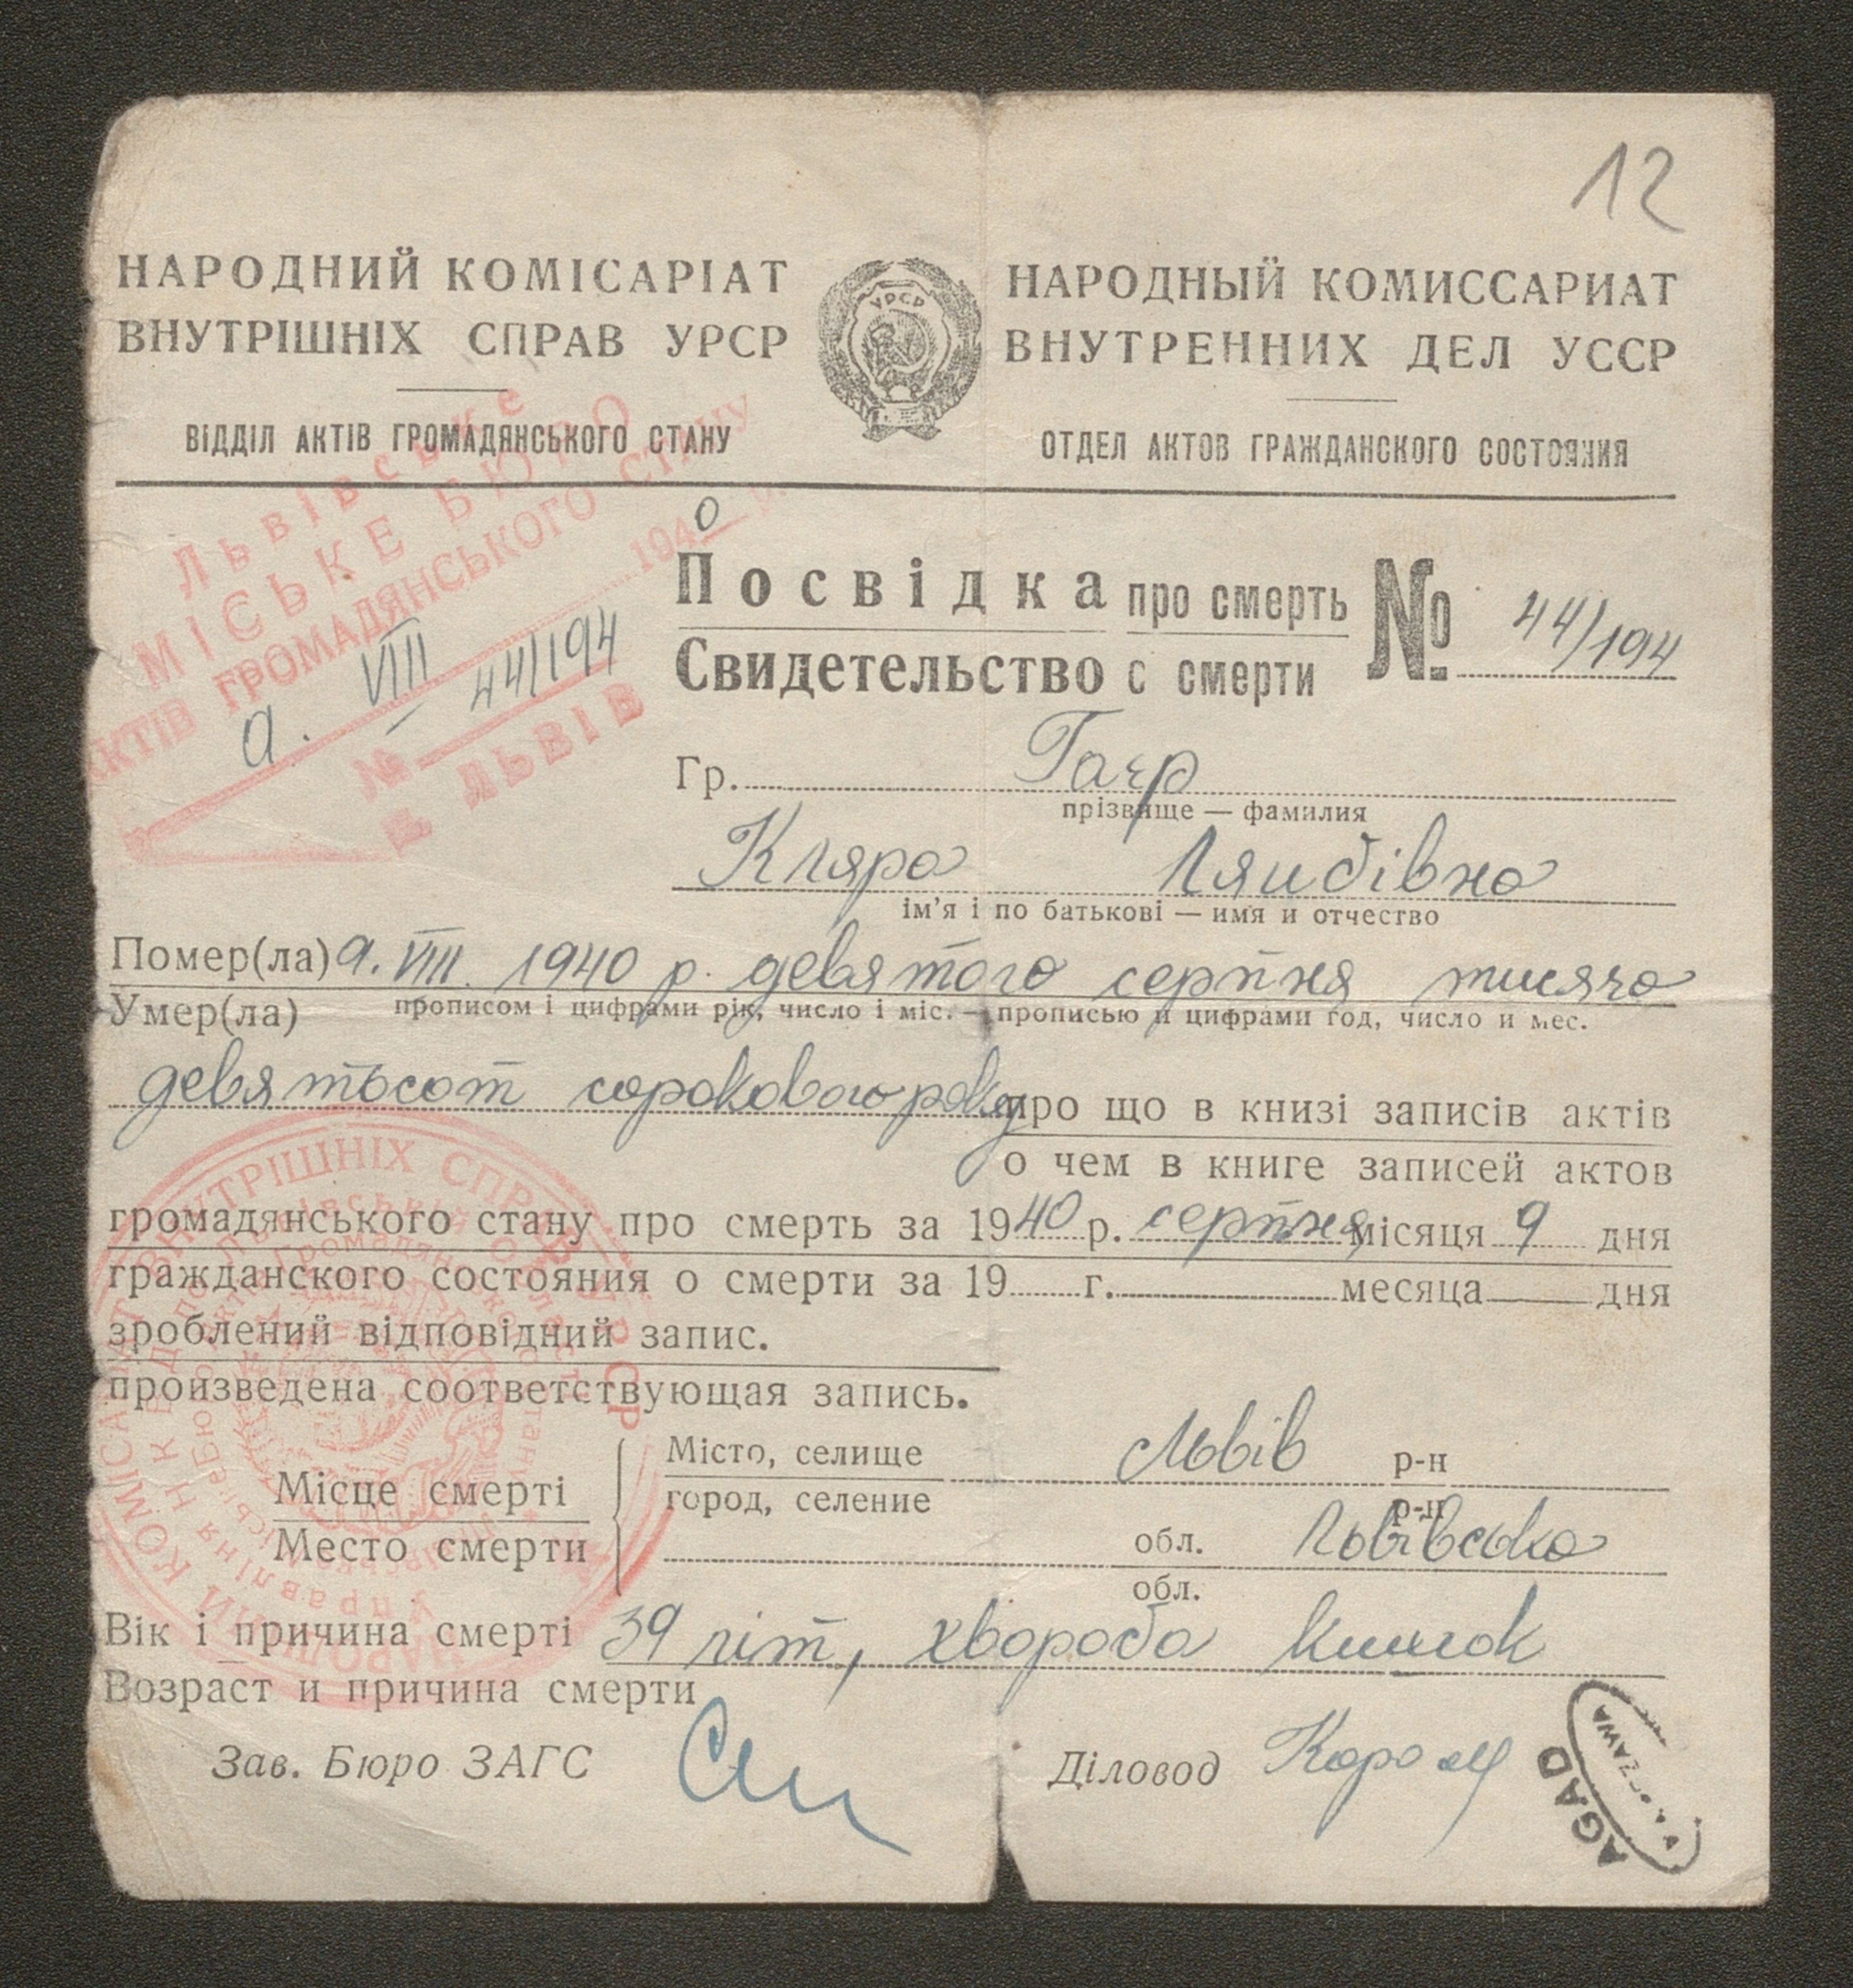 12
НАРОДНИЙ КОМІСАРІАТ
ВНУТРІШНІХ СПРАВ УРСР
ВІДДІЛ АКТІВ ГРОМАДЯНСЬКОГО СТАНУ
УРСР
НАРОДНЫЙ КОМИССАРИАТ
ВНУТРЕННИХ ДЕЛ УССР
ОТДЕЛ АКТОВ ГРАЖДАНСКОГО СОСТОЯНИЯ
Львівське
МІСЬКЕ БЮРО
АКТІВ ГРОМАДЯНСЬКОГО СТАНУ
9. VIII 1940 р.
№ 44/194
м. ЛЬВІВ
Посвідка про смерть № 44/194
Свидетельство с смерти
Гр. Гаєр
прізвище — фамилия
Кляра Ляибівна
ім'я і по батькові — имя и отчество
Помер(ла) 9. VIII. 1940 р. девятого серпня тисяча
Умер(ла) прописом і цифрами рік, число і міс. — прописью и цифрами год, число и мес.
девятьсот сорокового року про що в книзі записів актів
о чем в книге записей актов
громадянського стану про смерть за 1940 р. серпня місяця 9 дня
гражданского состояния о смерти за 19 г. месяца дня
зроблений відповідний запис.
произведена соответствующая запись.
Місце смерті
Место смерти
Місто, селище Львів р-н
город, селение р-н
обл. Львівська
обл.
Вік і причина смерті 39 літ, хвороба кишок
Возраст и причина смерти
Зав. Бюро ЗАГС
Діловод
AGAD
WARSZAWA